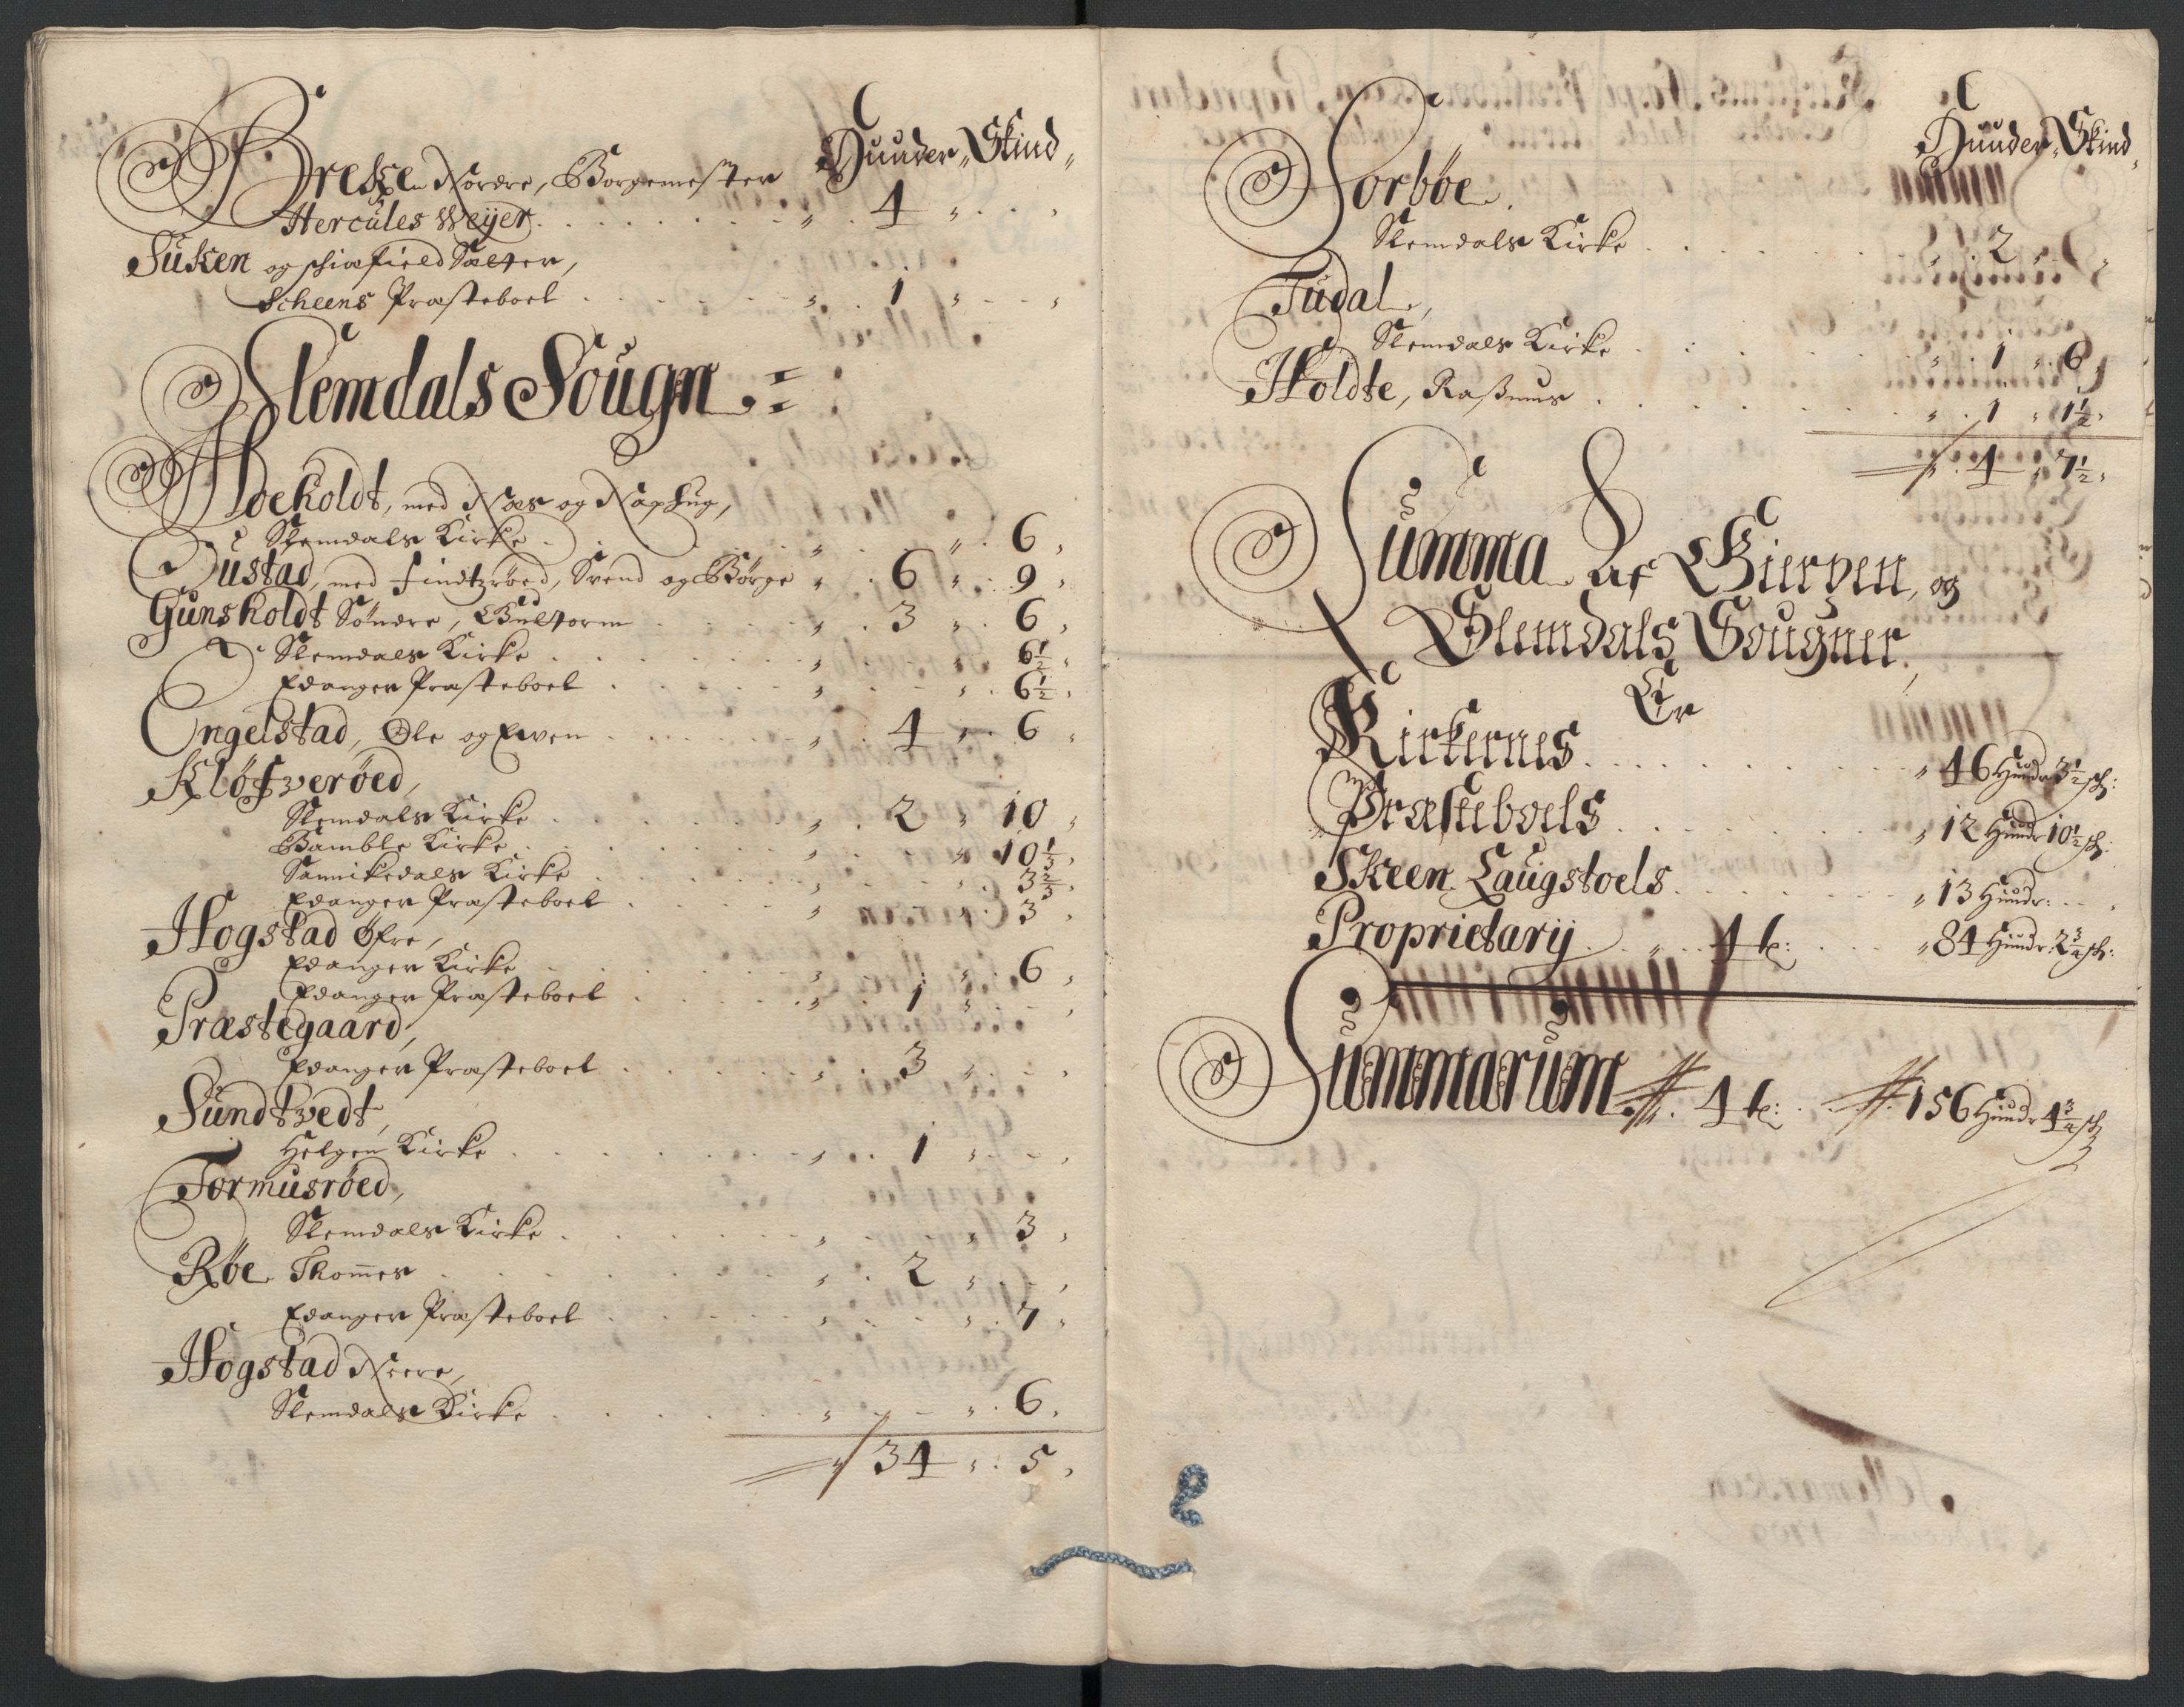 Huuder, Skind,
Brekke Nordre, Borgemester
Hercules Weÿer . . . . 4 „
Süken og Sætter,
Scheens Præsteboel . . . 1 „
Slemdals Sougn
Aoeholdt, med Næs og
Slemdals Kirke . . . „ 6,
Bustad, med Findtzröed, Svend og Börge „ 6 „ 9,
Günsholdt Söndre, Gulsorm . . „ 3 „ 6,
Slemdals Kirke . . . „ 6½,
Edanger Præsteboel . . . „ 6½,
Engelstad, Ole og Even . . . „ 4 „ 6,
Klöfveröed,
Slemdals Kirke . . . „ 2 „ 10,
Bamble Kirke . . . „ 10⅓,
Sannikedals Kirke . . . 3⅔,
Edanger Præsteboel . . . „ 3,
Hogstad Öfre,
Edanger Kirke . . . „ 6,
Edanger Præsteboel . . . „ 1 „
Præstegaard,
Edanger Præsteboel . . . „ 3 „
Sündtvedt,
Helgen Kirke . . . „ 1 „
Tormusröed,
Slemdals Kirke . . . „ 3,
Röe Thomes . . . „ 2 „
Edanger Præsteboel . . . „ 7,
Hogstad Neere,
Slemdals Kirke . . . „ 6,
34 „ 5,
Huuder, Skind,
Sorböe
Slemdals Kirke . . . 2 „
Tüdal,
Slemdals Kirke . . . „ 1 „ 6,
Holdte, Rasmus . . . „ 1 „ 1½,
4 „ 7½,
Summa Af Gierpen, og
Slemdals Sougner,
Er
Kirkernes . . . „ 46 Hundr 3½ sk:
Præsteboels . . . „ 12 Hundr 10½ sk:
Skeen Laugstoels . . . „ 13 Hundr:
Proprietarij . . „ 4 t: . . „ 84 Hundr: 2¾ sk:
Summarum 4 t: . . 156 Hundr 4¾ sk